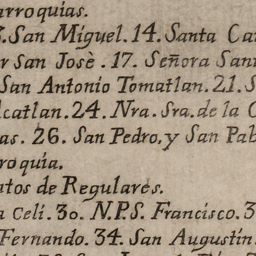 arroquias.
3. San Miguel. 14. Santa Ca
r San Josè. 17. Señora San
San Antonio Tomatlan. 21. S
lcatlan. 24. Nra. Sra. de la C
as. 26. San Pedro, y San Pab
roquia.
tos de Regulares.
a Celi. 30. N.P.S. Francisco. 3
Fernando. 34. San Augustin.